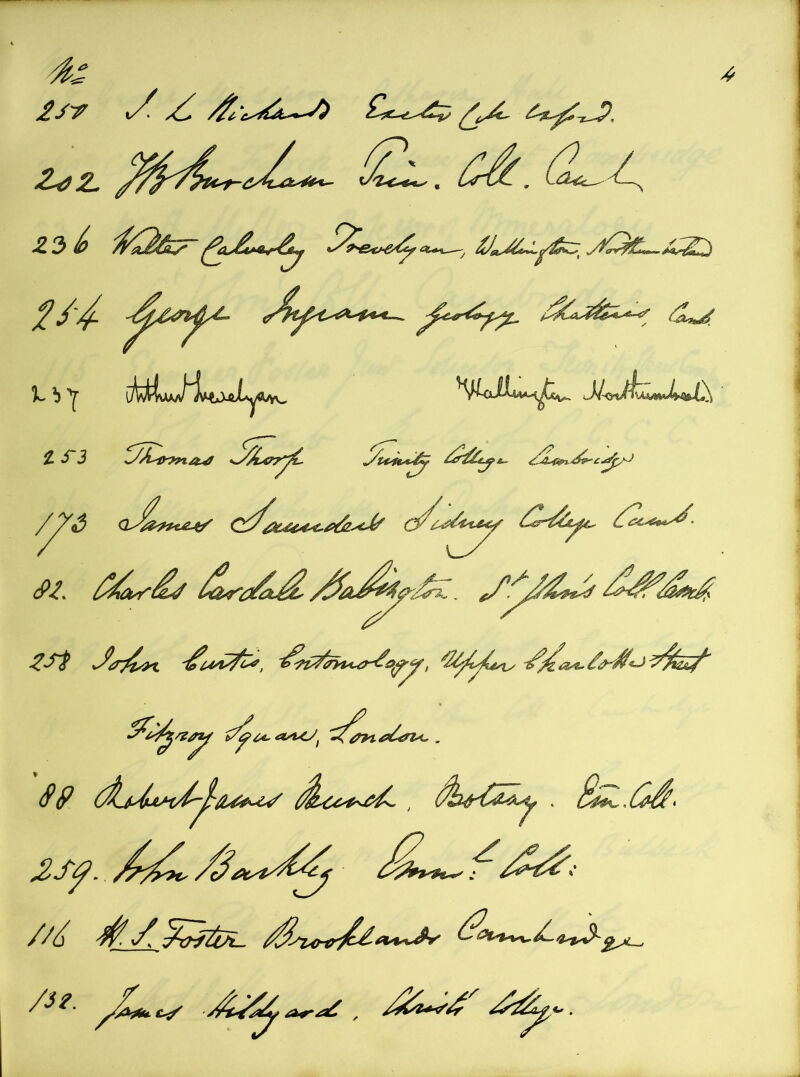 No 4
250 J. L. Richards Exeter Col. Oxford.
202 TB Burcham Trin. Coll. Camb
236 Walter Calverley Trevelyan, Wallington, Northumberland
254 George Ingram Geology Chatteris, Camb.
237 Arthur Trevelyan Wallington Northumberld.
253 Thomas Thorp Trinity College Cambridge
173 James Saunders Sidney College Camb.
82. Charles Cardale Babington. St. John's Coll. Camb.
258 John Curtis, Entomology, Upper Charlotte Street
Fitzroy Square, London.
88 Robert James Bunch, Botany. Em. Coll.
259. John Barkley Emml. Coll:
116 W. S. Foster Brooklands Cambridge
132. James Hildyard, Christ's College.